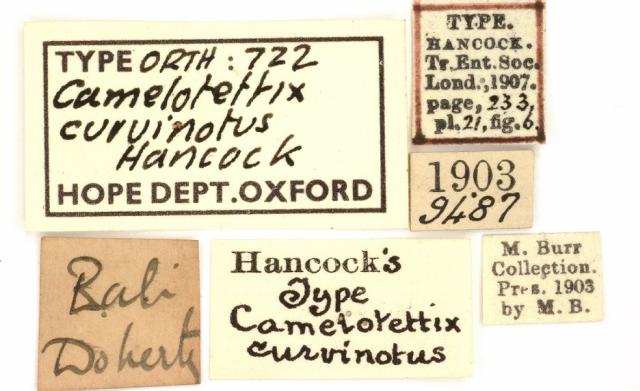 TYPE ORTH : 722
Camelotettix
curvinotus
Hancock
HOPE DEPT. OXFORD
TYPE.
HANCOCK.
Tr. Ent. Soc.
Lond., 1907.
page, 233,
pl. 21, fig. 6.
1903
9487
Bali
Doherty
Hancock's
Type
Camelotettix
curvinotus
M. Burr
Collection.
Pres. 1903
by M. B.